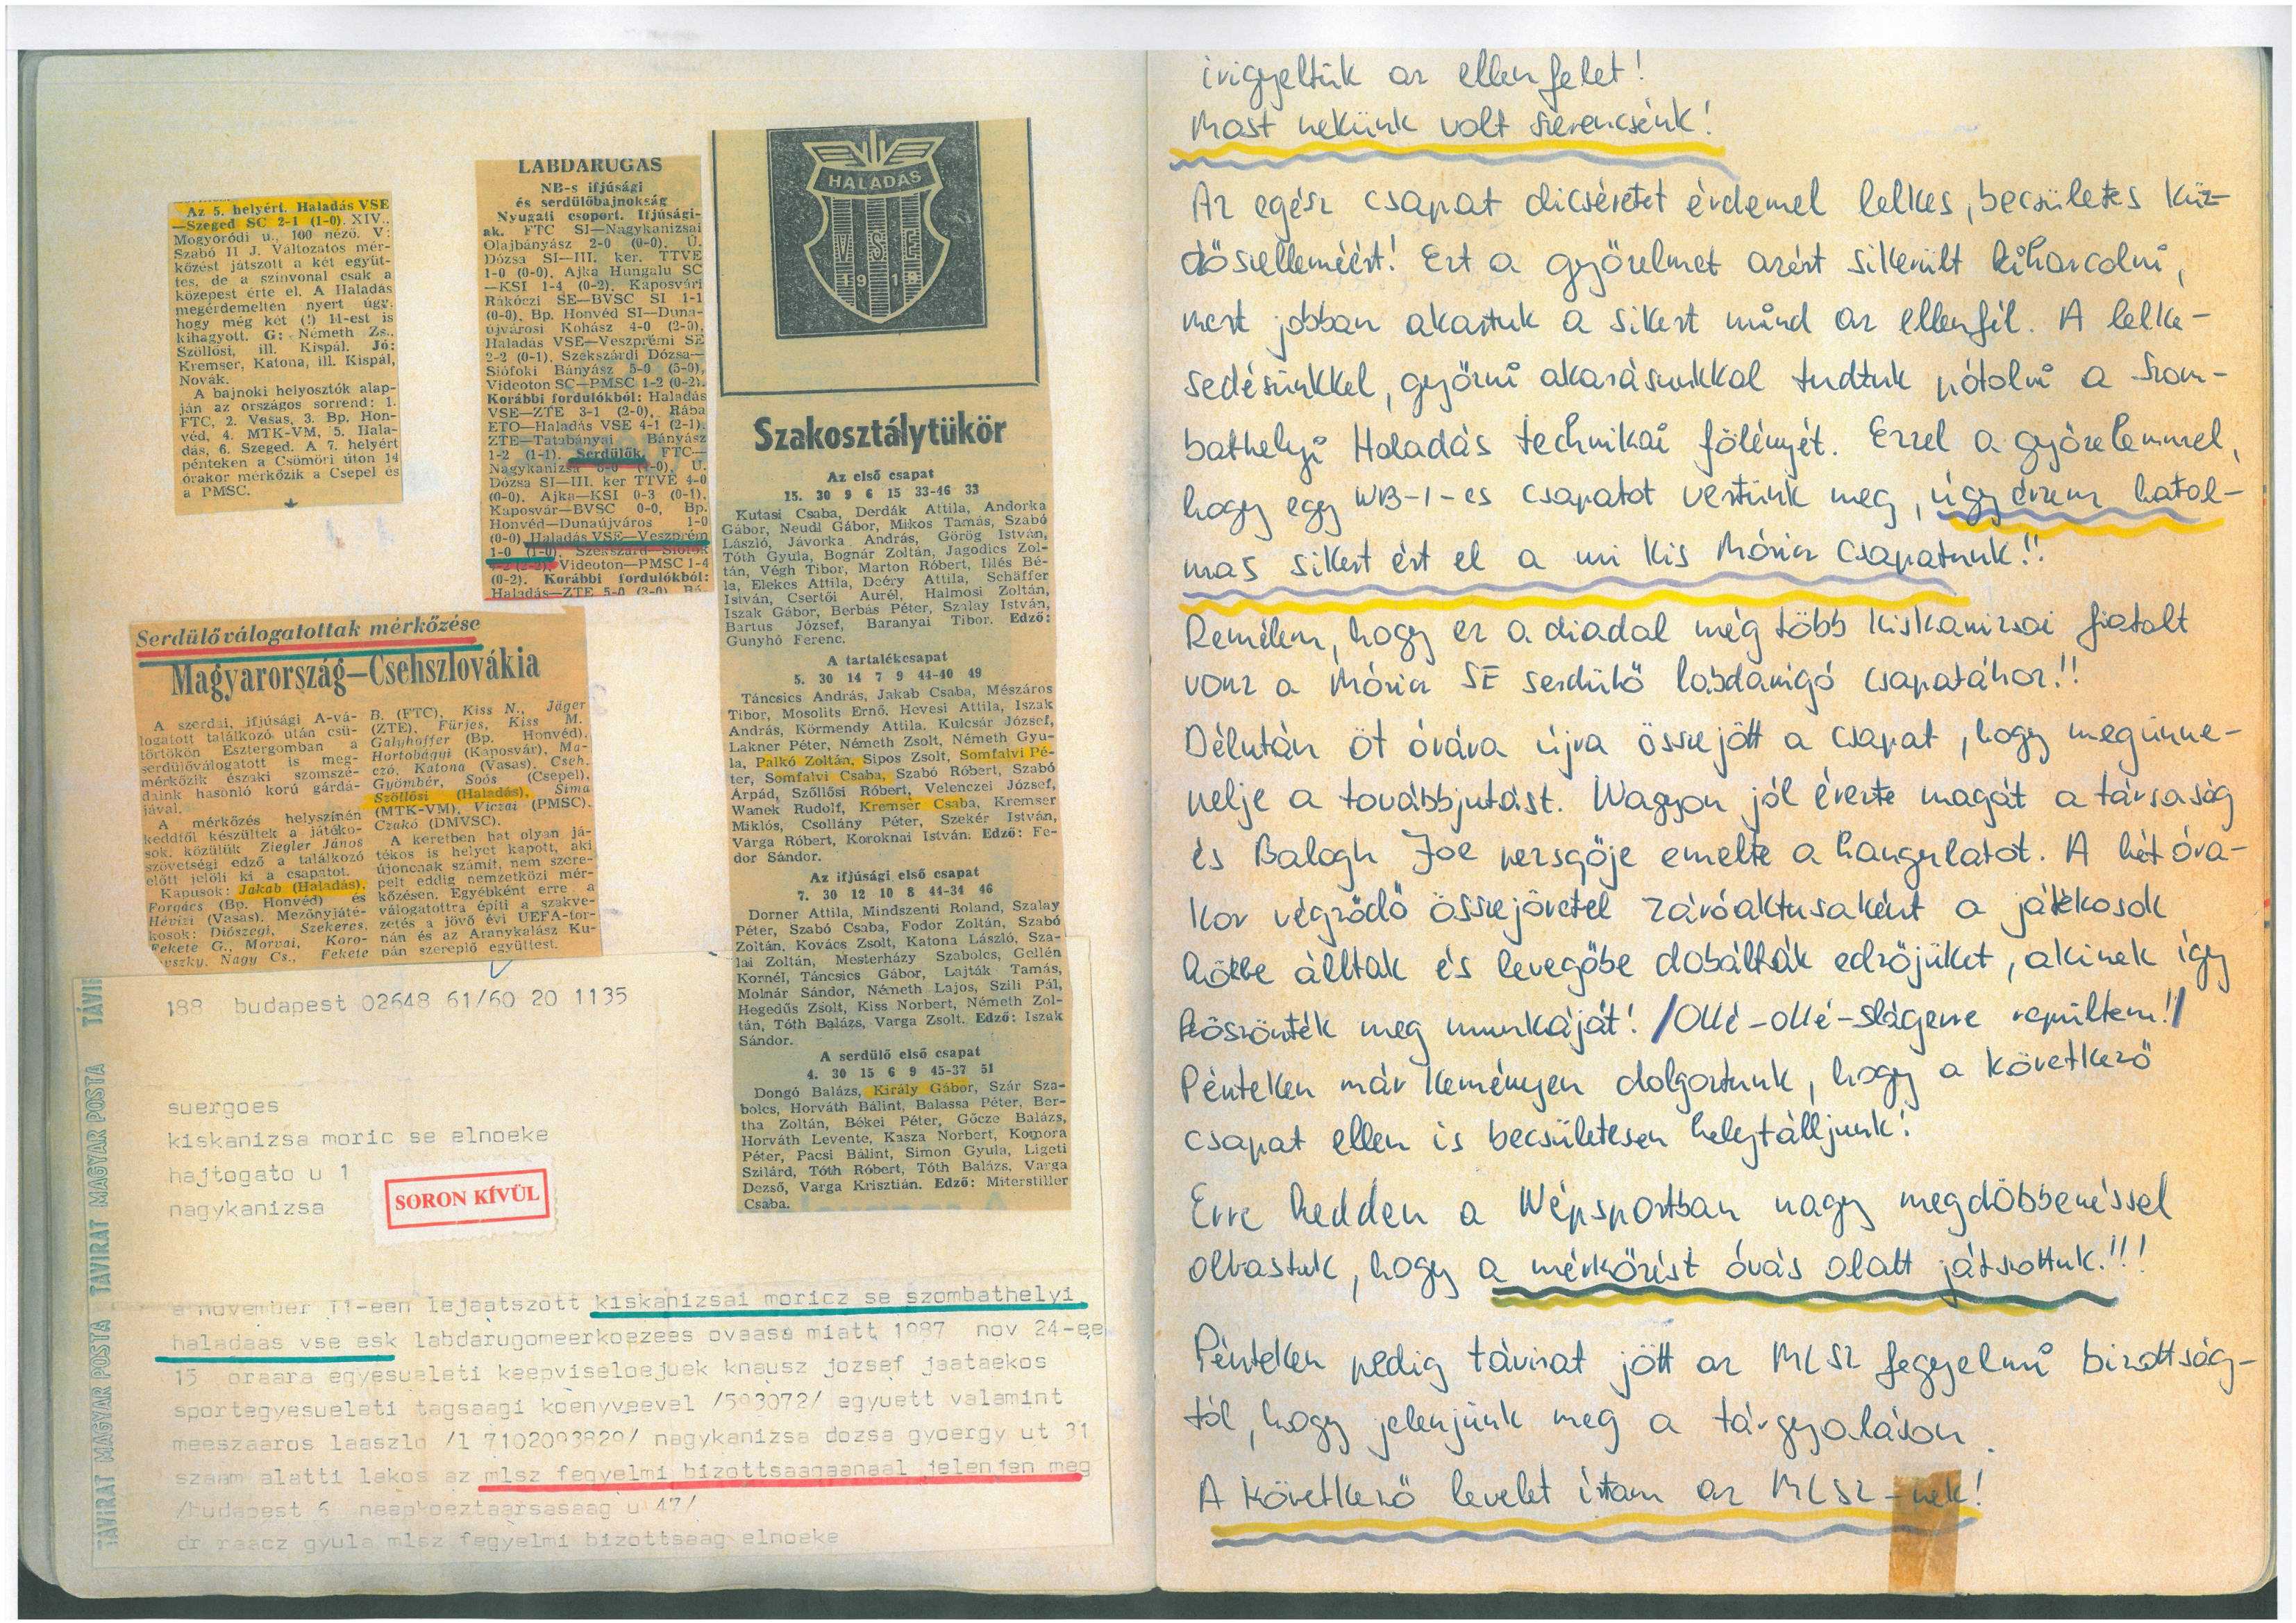 Az 5. helyért. Haladás VSE
—Szeged SC 2-1 (1-0). XIV.,
Mogyoródi u., 100 néző. V:
Szabó II J. Változatos mér-
kőzést játszott a két együt-
tes, de a színvonal csak a
közepest érte el. A Haladás
megérdemelten nyert úgy,
hogy még két (!) 11-est is
kihagyott. G: Németh Zs.,
Szöllősi, ill. Kispál. Jó:
Kremser, Katona, ill. Kispál,
Novák.
A bajnoki helyosztók alap-
ján az országos sorrend: 1.
FTC, 2. Vasas, 3. Bp. Hon-
véd, 4. MTK-VM, 5. Hala-
dás, 6. Szeged. A 7. helyért
pénteken a Csömöri úton 14
órakor mérkőzik a Csepel és
a PMSC.
LABDARÚGÁS
NB-s ifjúsági
és serdülőbajnokság
Nyugati csoport. Ifjúsági-
ak. FTC SI—Nagykanizsai
Olajbányász 2-0 (0-0), Ú.
Dózsa SI—III. ker. TTVE
1-0 (0-0), Ajka Hungalu SC
—KSI 1-4 (0-2), Kaposvári
Rákóczi SE—BVSC SI 1-1
(0-0), Bp. Honvéd SI—Duna-
újvárosi Kohász 4-0 (2-0),
Haladás VSE—Veszprémi SE
2-2 (0-1), Szekszárdi Dózsa—
Siófoki Bányász 5-0 (5-0),
Videoton SC—PMSC 1-2 (0-2).
Korábbi fordulókból: Haladás
VSE—ZTE 3-1 (2-0), Rába
ETO—Haladás VSE 4-1 (2-1),
ZTE—Tatabányai Bányász
1-2 (1-1). Serdülők. FTC—
Nagykanizsa 6-0 (4-0), Ú.
Dózsa SI—III. ker TTVE 4-0
(0-0), Ajka—KSI 0-3 (0-1),
Kaposvár—BVSC 0-0, Bp.
Honvéd—Dunaújváros 1-0
(0-0), Haladás VSE—Veszprém
1-0 (1-0), Szekszárd—Siófok
Videoton—PMSC 1-4
(0-2). Korábbi fordulókból:
Haladás—ZTE 5-0 (3-0), Rá-
HALADÁS
VSE
1919
Szakosztálytükör
Az első csapat
15. 30 9 6 15 33-46 33
Kutasi Csaba, Derdák Attila, Andorka
Gábor, Neudl Gábor, Mikos Tamás, Szabó
László, Jávorka András, Görög István,
Tóth Gyula, Bognár Zoltán, Jagodics Zol-
tán, Végh Tibor, Marton Róbert, Illés Bé-
la, Elekes Attila, Deéry Attila, Schäffer
István, Csertői Aurél, Halmosi Zoltán,
Iszak Gábor, Berbás Péter, Szalay István,
Bartus József, Baranyai Tibor. Edző:
Gunyhó Ferenc.
A tartalékcsapat
5. 30 14 7 9 44-40 49
Táncsics András, Jakab Csaba, Mészáros
Tibor, Mosolits Ernő, Hevesi Attila, Iszak
András, Körmendy Attila, Kulcsár József,
Lakner Péter, Németh Zsolt, Németh Gyu-
la, Palkó Zoltán, Sipos Zsolt, Somfalvi Pé-
ter, Somfalvi Csaba, Szabó Róbert, Szabó
Árpád, Szőllősi Róbert, Velenczei József,
Wanek Rudolf, Kremser Csaba, Kremser
Miklós, Csollány Péter, Szekér István,
Varga Róbert, Koroknai István. Edző: Fe-
dor Sándor.
Az ifjúsági első csapat
7. 30 12 10 8 44-34 46
Dorner Attila, Mindszenti Roland, Szalay
Péter, Szabó Csaba, Fodor Zoltán, Szabó
Zoltán, Kovács Zsolt, Katona László, Sza-
lai Zoltán, Mesterházy Szabolcs, Gellén
Kornél, Táncsics Gábor, Lajták Tamás,
Molnár Sándor, Németh Lajos, Szili Pál,
Hegedűs Zsolt, Kiss Norbert, Németh Zol-
tán, Tóth Balázs, Varga Zsolt. Edző: Iszak
Sándor.
A serdülő első csapat
4. 30 15 6 9 45-37 51
Dongó Balázs, Király Gábor, Szár Sza-
bolcs, Horváth Bálint, Balassa Péter, Ber-
tha Zoltán, Békei Péter, Gőcze Balázs,
Horváth Levente, Kasza Norbert, Komora
Péter, Pacsi Bálint, Simon Gyula, Ligeti
Szilárd, Tóth Róbert, Tóth Balázs, Varga
Dezső, Varga Krisztián. Edző: Miterstiller
Csaba.
Serdülőválogatottak mérkőzése
Magyarország—Csehszlovákia
A szerdai, ifjúsági A-vá-
logatott találkozó után csü-
törtökön Esztergomban a
serdülőválogatott is meg-
mérkőzik északi szomszé-
daink hasonló korú gárdá-
jával.
A mérkőzés helyszínén
keddtől készültek a játéko-
sok, közülük Ziegler János
szövetségi edző a találkozó
előtt jelöli ki a csapatot.
Kapusok: Jakab (Haladás),
Forgács (Bp. Honvéd) és
Hévizi (Vasas). Mezőnyjáté-
kosok: Diószegi, Szekeres,
Fekete G., Morvai, Koro-
vszky, Nagy Cs., Fekete
B. (FTC), Kiss N., Jäger
(ZTE), Fürjes, Kiss M.
Galyhoffer (Bp. Honvéd),
Hortobágyi (Kaposvár), Ma-
czó, Katona (Vasas), Cseh,
Gyömbér, Soós (Csepel),
Szőllősi (Haladás), Sima
(MTK-VM), Viczai (PMSC),
Czakó (DMVSC).
A keretben hat olyan já-
tékos is helyet kapott, aki
újoncnak számít, nem szere-
pelt eddig nemzetközi mér-
kőzésen. Egyébként erre a
válogatottra építi a szakve-
zetés a jövő évi UEFA-tor-
nán és az Aranykalász Ku-
pán szereplő együttest.
TÁVIRAT MAGYAR POSTA TÁVIRAT MAGYAR POSTA TÁVIR
188 budapest 02648 61/60 20 1135
suergoes
kiskanizsa moric se elnoeke
hajtogato u 1
nagykanizsa
SORON KÍVÜL
a november 11-een lejaatszott kiskanizsai moricz se szombathelyi
haladaas vse esk labdarugomeerkoezees ovaasa miatt 1987 nov 24-ee
15 oraara egyesueleti keepviseloejuek knausz jozsef jaataekos
sportegyesueleti tagsaagi koenyveevel /593072/ egyuett valamint
meeszaaros laaszlo /1 7102093829/ nagykanizsa dozsa gyoergy ut 31
szaam alatti lakos az mlsz fegyelmi bizottsaagaanaal jelenjen meg
/budapest 6 neepkoeztaarsasaag u 47/
dr raacz gyula mlsz fegyelmi bizottsaag elnoeke
irigyeltük az ellenfelet!
Most nekünk volt szerencsénk!
Az egész csapat dicséretet érdemel lelkes, becsületes küz-
dőszelleméért! Ezt a győzelmet azért sikerült kiharcolni,
mert jobban akartuk a sikert mind az ellenfél. A lelke-
sedésünkkel, győzni akarásunkkal tudtuk pótolni a Szom-
bathelyi Haladás technikai fölényét. Ezzel a győzelemmel,
hogy egy NB-I-es csapatot vertünk meg, úgy érzem hatal-
mas sikert ért el a mi kis Móricz csapatunk!!
Remélem, hogy ez a diadal még több kiskanizsai fiatalt
vonz a Móricz SE serdülő labdarúgó csapatához!!
Délután öt órára újra összejött a csapat, hogy megünne-
pelje a továbbjutást. Nagyon jól érezte magát a társaság
és Balogh Joe pezsgője emelte a hangulatot. A hét óra-
kor végződő összejövetel záróaktusaként a játékosok
körbe álltak és levegőbe dobálták edzőjüket, akinek így
köszönték meg munkáját! /Ollé-ollé-slágerre repültem!!/
Pénteken már keményen dolgoztunk, hogy a következő
csapat ellen is becsületesen helytálljunk!
Erre kedden a Népsportban nagy megdöbbenéssel
olvastuk, hogy a mérkőzést óvás alatt játszottuk!!!
Pénteken pedig távirat jött az MLSZ fegyelmi bizottság-
tól, hogy jelenjünk meg a tárgyaláson.
A következő levelet írtam az MLSZ-nek!